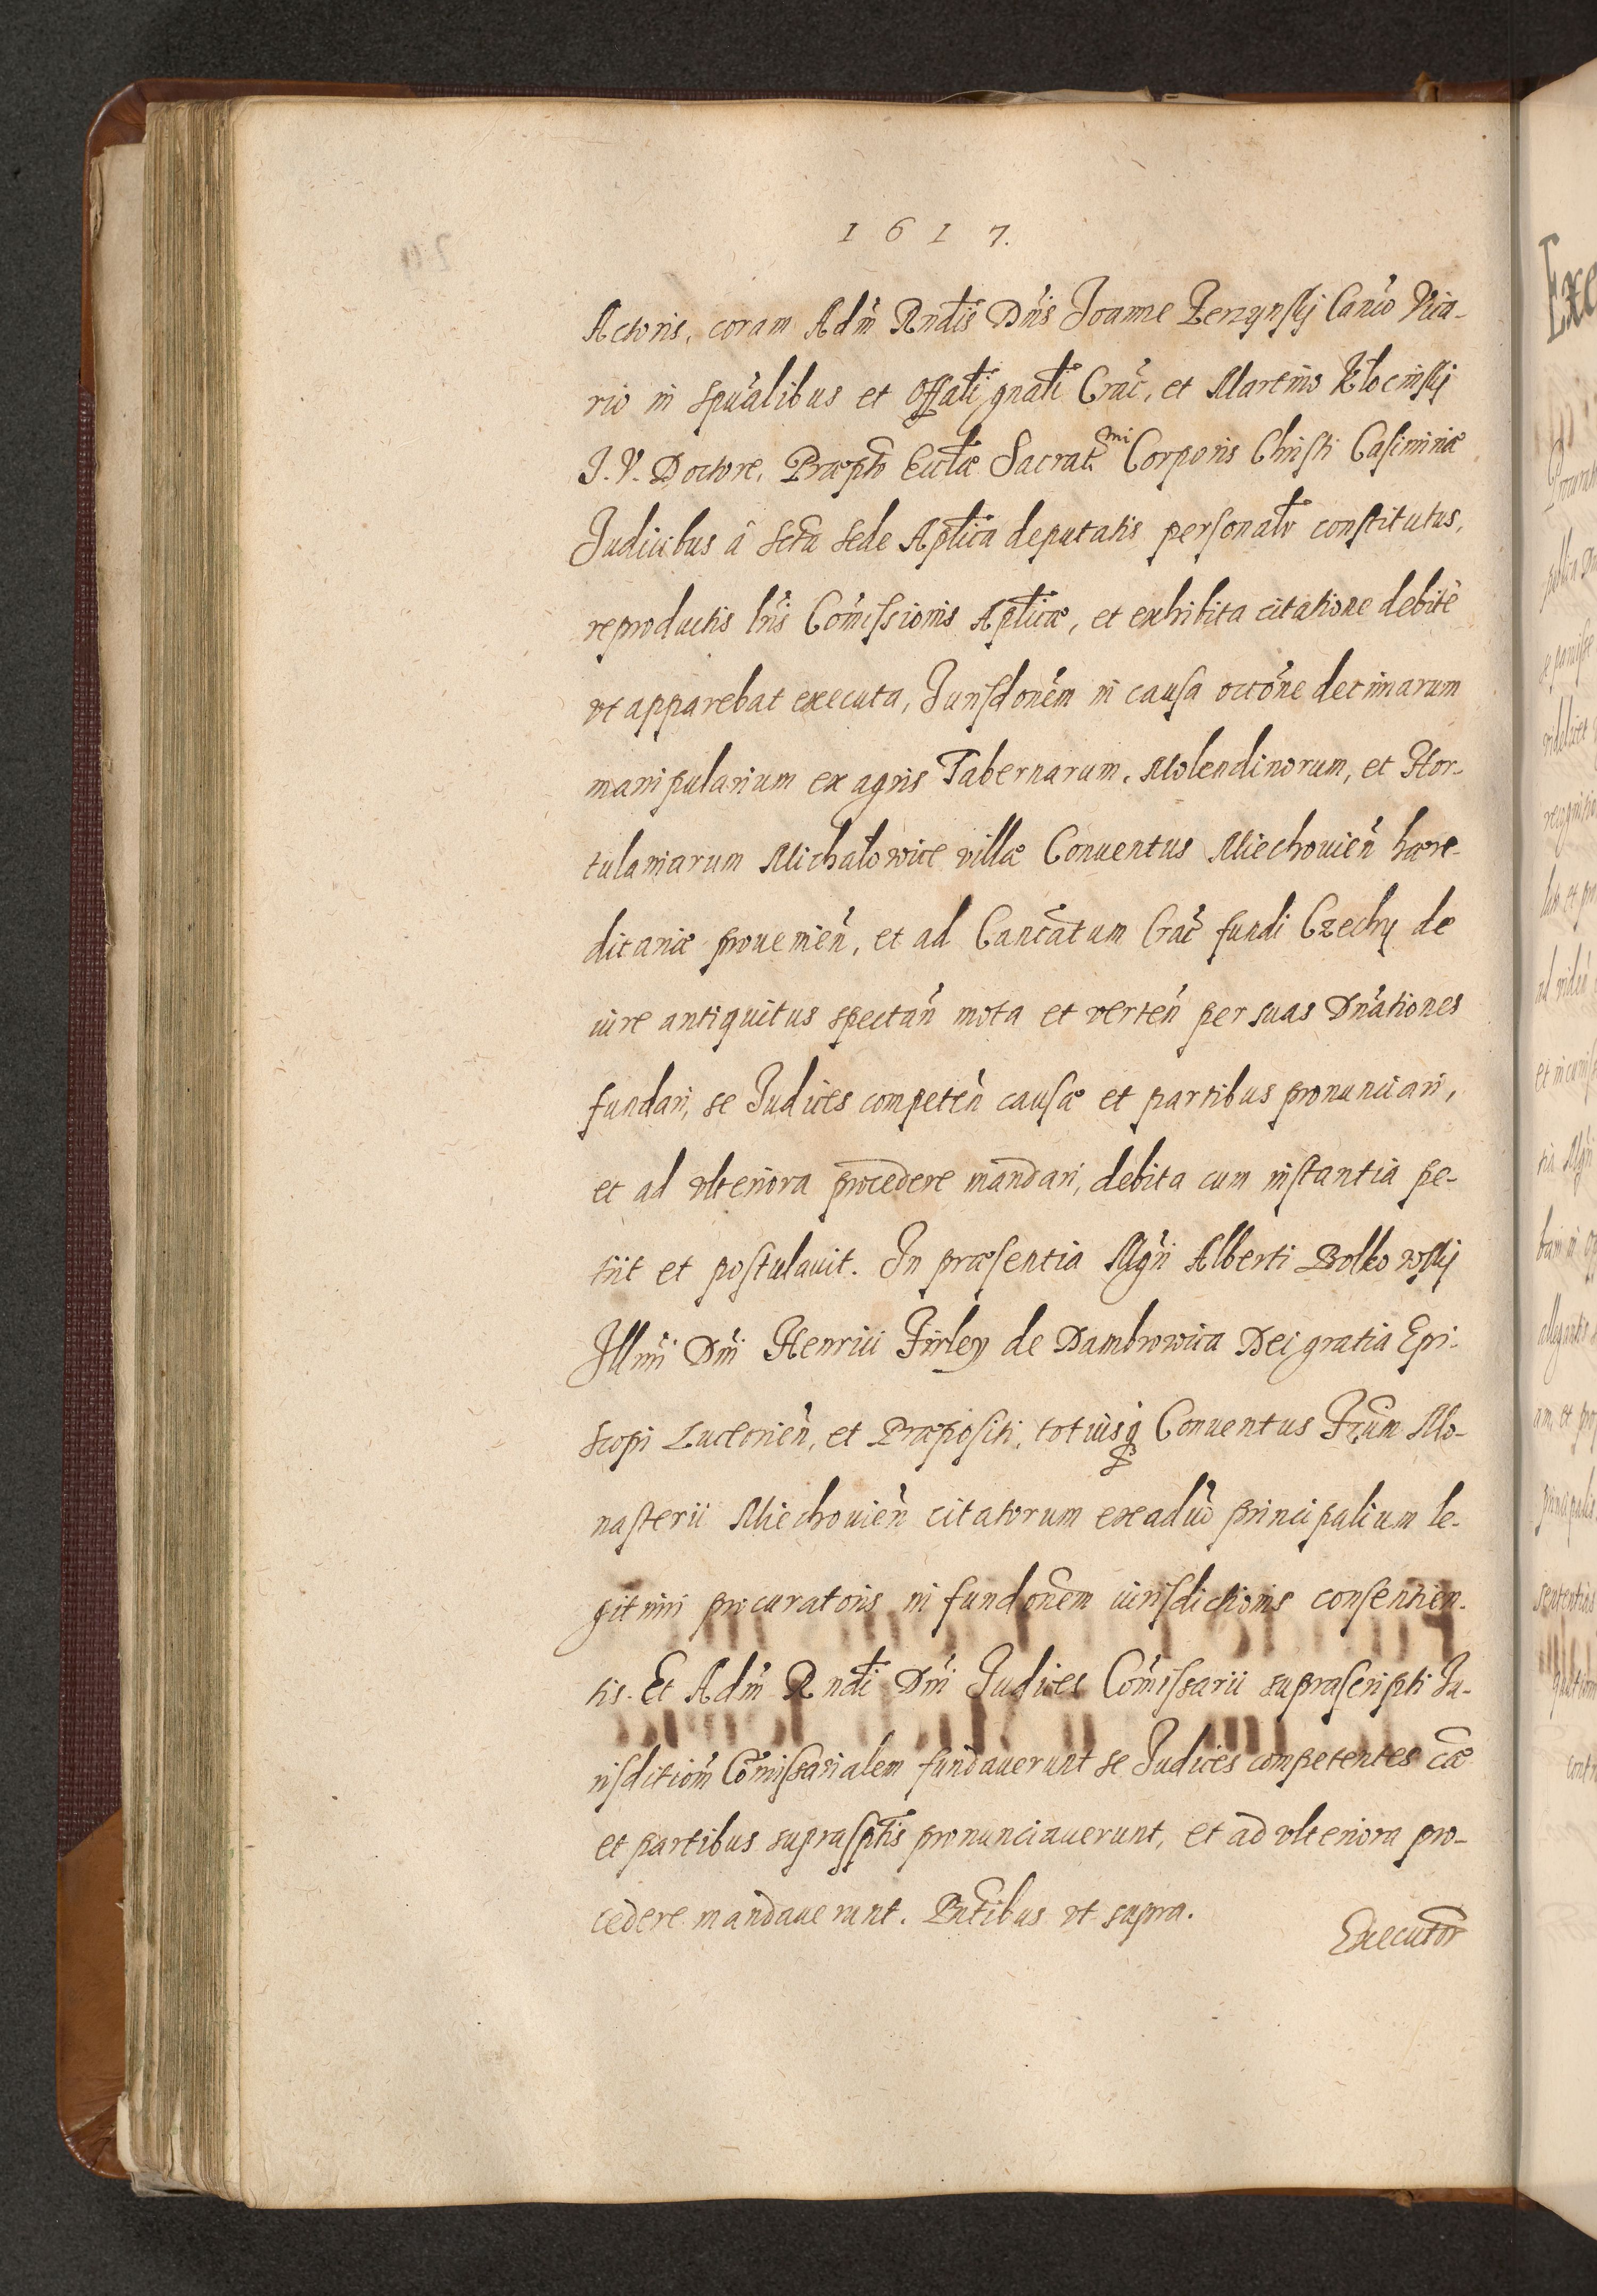 1617.
Actoris, coram Adm̃ Rndis Dñis Joanne Zerzynskj Canco Vica-
rio in spũalibus et Offãli gnãli Crac̃, et Martino Klocinskj
J. V. Doctore, Præpto Ecclæ Sacrat.mi Corporis Christi Casimiriæ
Judicibus â Scta Sede Aplica deputatis personalr constitutus,
reproductis lris Com̃issionis Aplicæ, et exhibita citatione debitè
vt apparebat executa, Jurisdonem in causa occõne decimarum
manipularium ex agris Tabernarum, Molendinorum, et Hor-
tulaniarum Michałowice villæ Conuentus Miechouien̄ hære-
ditariæ prouenien̄, et ad Cancatum Crac̃ fundi Czechy de
iure antiquitus spectan̄ mota et verten̄ per suas Dnationes
fundari, se Judices competen̄ causæ et partibus pronunciari,
et ad vlteriora procedere mandari, debita cum instantia pe-
tiit et postulauit. In præsentia Mgci Alberti Bolkowskj
Illmi Dñi Henrici Firley de Dambrowica Dei gratia Epi-
scopi Luceorien̄, et Præpositi, totiusq Conuentus Frum Mo-
nasterii Miechouien̄ citatorum ex aduo principalium le-
gitimi procuratoris in fundonem iurisdictionis consentien-
tis. Et Adm̃ Rndi Dñi Judices Com̃issarii suprascripti Ju-
risdictiom̃ Com̃issarialem fundauerunt se Judices competentes cæ
et partibus suprasptis pronunciauerunt, et ad vlteriora pro-
cedere mandauerunt. Pntibus vt supra.
Executor